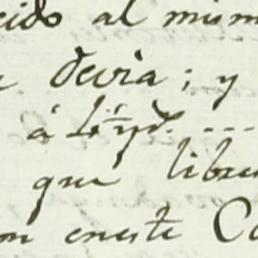 cido al mism
devia; y
á
que libre
on eneste Co